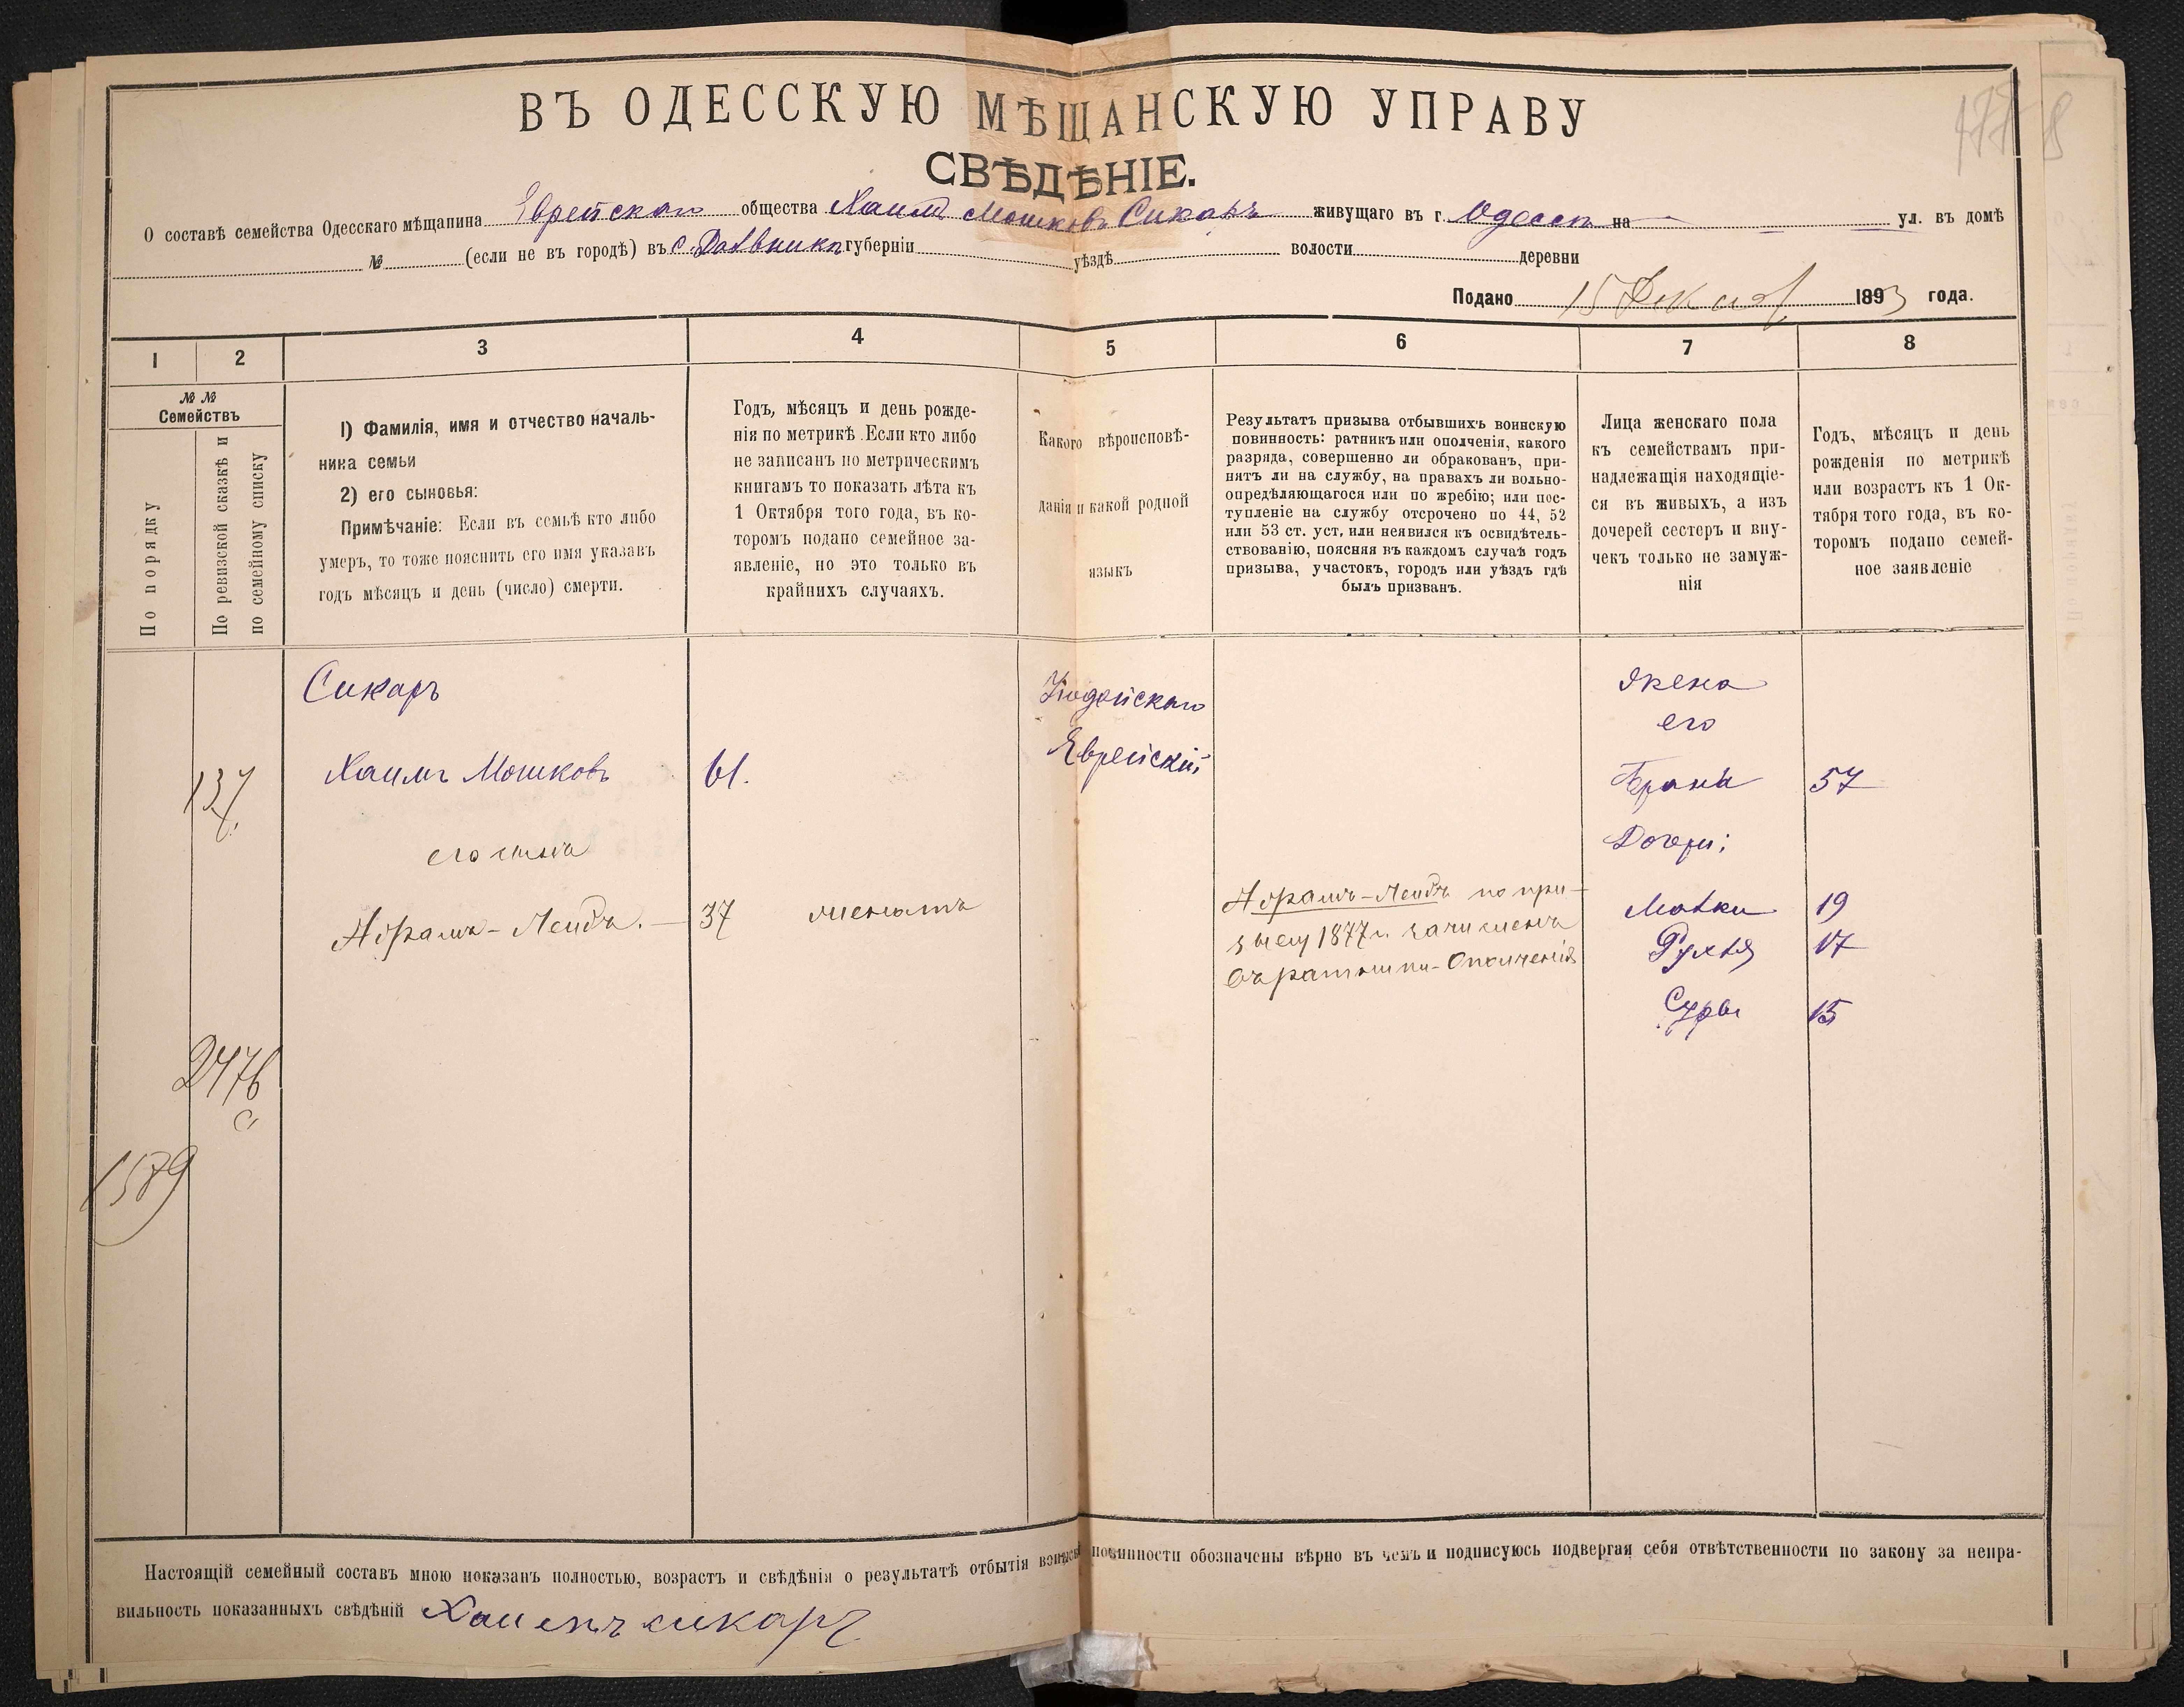 ВЪ ОДЕССКУЮ МѢЩАНСКУЮ УПРАВУ
СВѢДѢНІЕ.
О составѣ семейства Одесскаго мѣщанина Еврейскаго общества Хаима Мошковъ Сикаръ живущаго въ г. Одессѣ на ул. въ домѣ
№ (если не въ городѣ) въ с. Дальникѣ губерніи уѣздѣ волости деревни
Подано 15 1893 года.
1 2 3 4 5 6 7 8
№ №
Семействъ
По порядку
По ревизской сказкѣ и
по семейному списку
1) Фамилія, имя и отчество началь-
ника семьи
2) его сыновья:
Примѣчаніе: Если въ семьѣ кто либо
умеръ, то тоже пояснить его имя указавъ
годъ мѣсяцъ и день (число) смерти.
Годъ, мѣсяцъ и день рожде-
нія по метрикѣ. Если кто либо
не записанъ по метрическимъ
книгамъ то показать лѣта къ
1 Октября того года, въ ко-
торомъ подано семейное за-
явленіе, но это только въ
крайнихъ случаяхъ.
Какого вѣроисповѣ-
данія и какой родной
языкъ
Результатъ призыва отбывшихъ воинскую
повинность: ратникъ или ополченія, какого
разряда, совершенно ли обракованъ, при-
нятъ ли на службу, на правахъ ли вольно-
опредѣляющагося или по жребію; или пос-
тупленіе на службу отсрочено по 44, 52
или 53 ст. уст. или неявился къ освидѣтель-
ствованію, поясняя въ каждомъ случаѣ годъ
призыва, участокъ, городъ или уѣздъ гдѣ
былъ призванъ.
Лица женскаго пола
къ семействамъ при-
надлежащія находящіе-
ся въ живыхъ, а изъ
дочерей сестеръ и вну-
чекъ только не замуж-
нія
Годъ, мѣсяцъ и день
рожденія по метрикѣ
или возрастъ къ 1 Ок-
тября того года, въ ко-
торомъ подано семей-
ное заявленіе
Сикаръ Іюдейскаго жена
его
137 Хаимъ Мошковъ 61. Еврейскій Брана 57
его сына Дочери:
Абрамъ-Лейбъ. — 37 женатъ
Абрамъ-Лейбъ по при-
зыву 1877 г. зачисленъ
въ ратники-Ополченія
Малки 19
Рухля 17
Суры 15
2476
с
1579
Настоящій семейный составъ мною показанъ полностью, возрастъ и свѣдѣнія о результатѣ отбытія воинской повинности обозначены вѣрно въ чемъ и подписуюсь подвергая себя отвѣтственности по закону за непра-
вильность показанныхъ свѣдѣній Хаимъ сикаръ